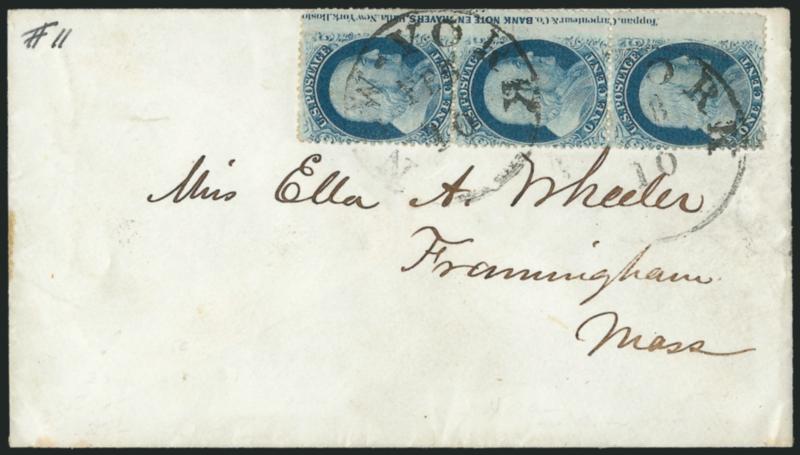 # 11
Toppan, Carpenter & Co. BANK NOTE ENGRAVERS, Phila, New York, Bosto
U.S. POSTAGE
ONE CENT
U.S. POSTAGE
ONE CENT
U.S. POSTAGE
ONE CENT
NEW-YORK
10
ORK
10
Miss Ella A. Wheeler
Framingham
Mass